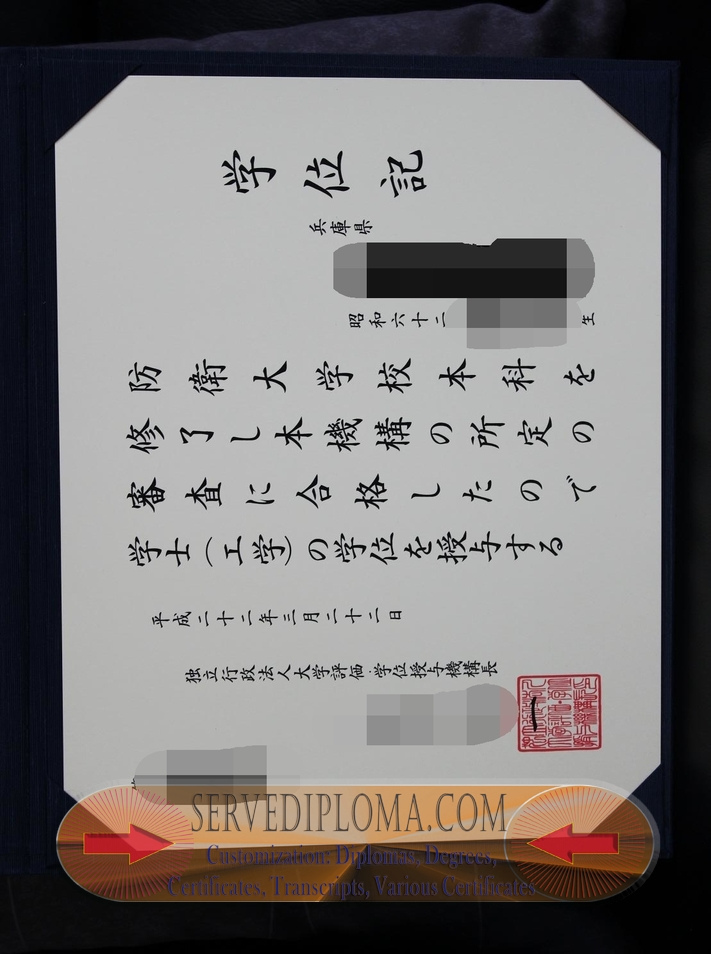 学位記
兵庫県
昭和六十二
生
防衛大学校本科を
修了し本機構の所定の
審査に合格したので
学士（工学）の学位を授与する
平成二十二年三月二十二日
独立行政法人大学評価・学位授与機構長
SERVEDIPLOMA.COM
Customization: Diplomas, Degrees,
Certificates, Transcripts, Various Certificates